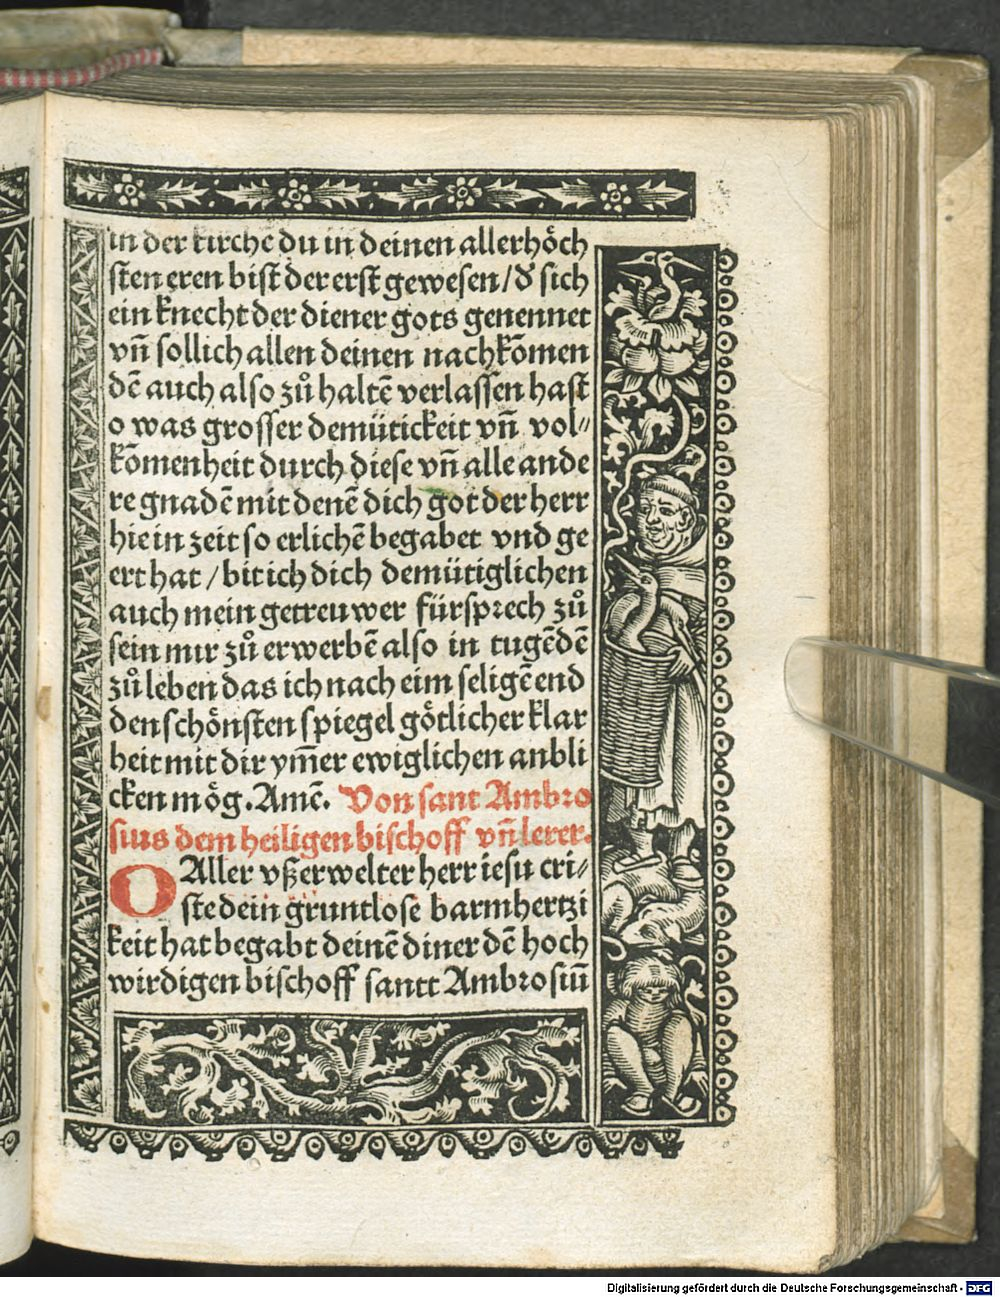 in der kirche du in deinen allerhöch
sten eren bist der erst gewesen / d̕ sich
ein knecht der diener gots genennet
vn̄ sollich allen deinen nachkōmen
dē auch also zů haltē verlassen hast
o was grosser demütickeit vn̄ vol⸗
kōmenheit durch diese vn̄ alle ande
re gnadē mit denē dich got der herr
hie in zeit so erlichē begabet vnd ge
ert hat / bit ich dich demütiglichen
auch mein getreuwer fürsprech zů
sein mir zů erwerbē also in tugēdē
zů leben das ich nach eim seligē end
den schönsten spiegel götlicher klar
heit mit dir ym̄er ewiglichen anbli
cken mög. Amē. Von sant Ambro
sius dem heiligen bischoff vn̄ lerer.
O Aller vßerwelter herr iesu cri⸗
ste dein gruntlose barmhertzi
keit hat begabt deinē diner dē hoch
wirdigen bischoff santt Ambrosiū
Digitalisierung gefördert durch die Deutsche Forschungsgemeinschaft - DFG